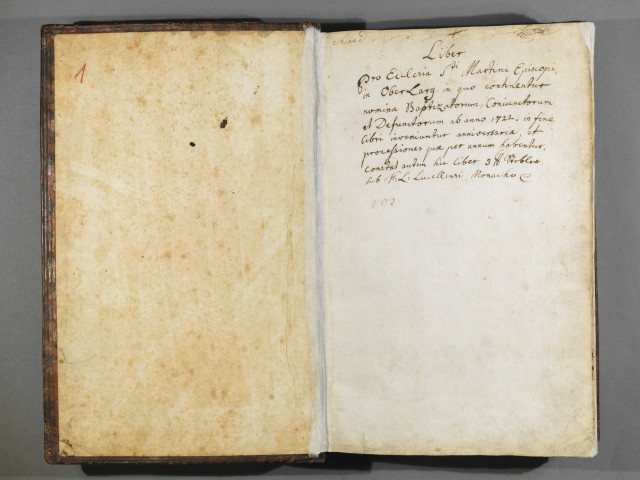 1
Liber
Pro Ecclesia Sti Martini Episcopi,
in OberLarg in quo continentur
nomina Baptizatorum, Coniunctorum
et Defunctorum ab anno 1722. in fine
libri inveniuntur anniversaria, et
processiones quæ per annum habentur.
constat autem hic liber 3
sub Monacho